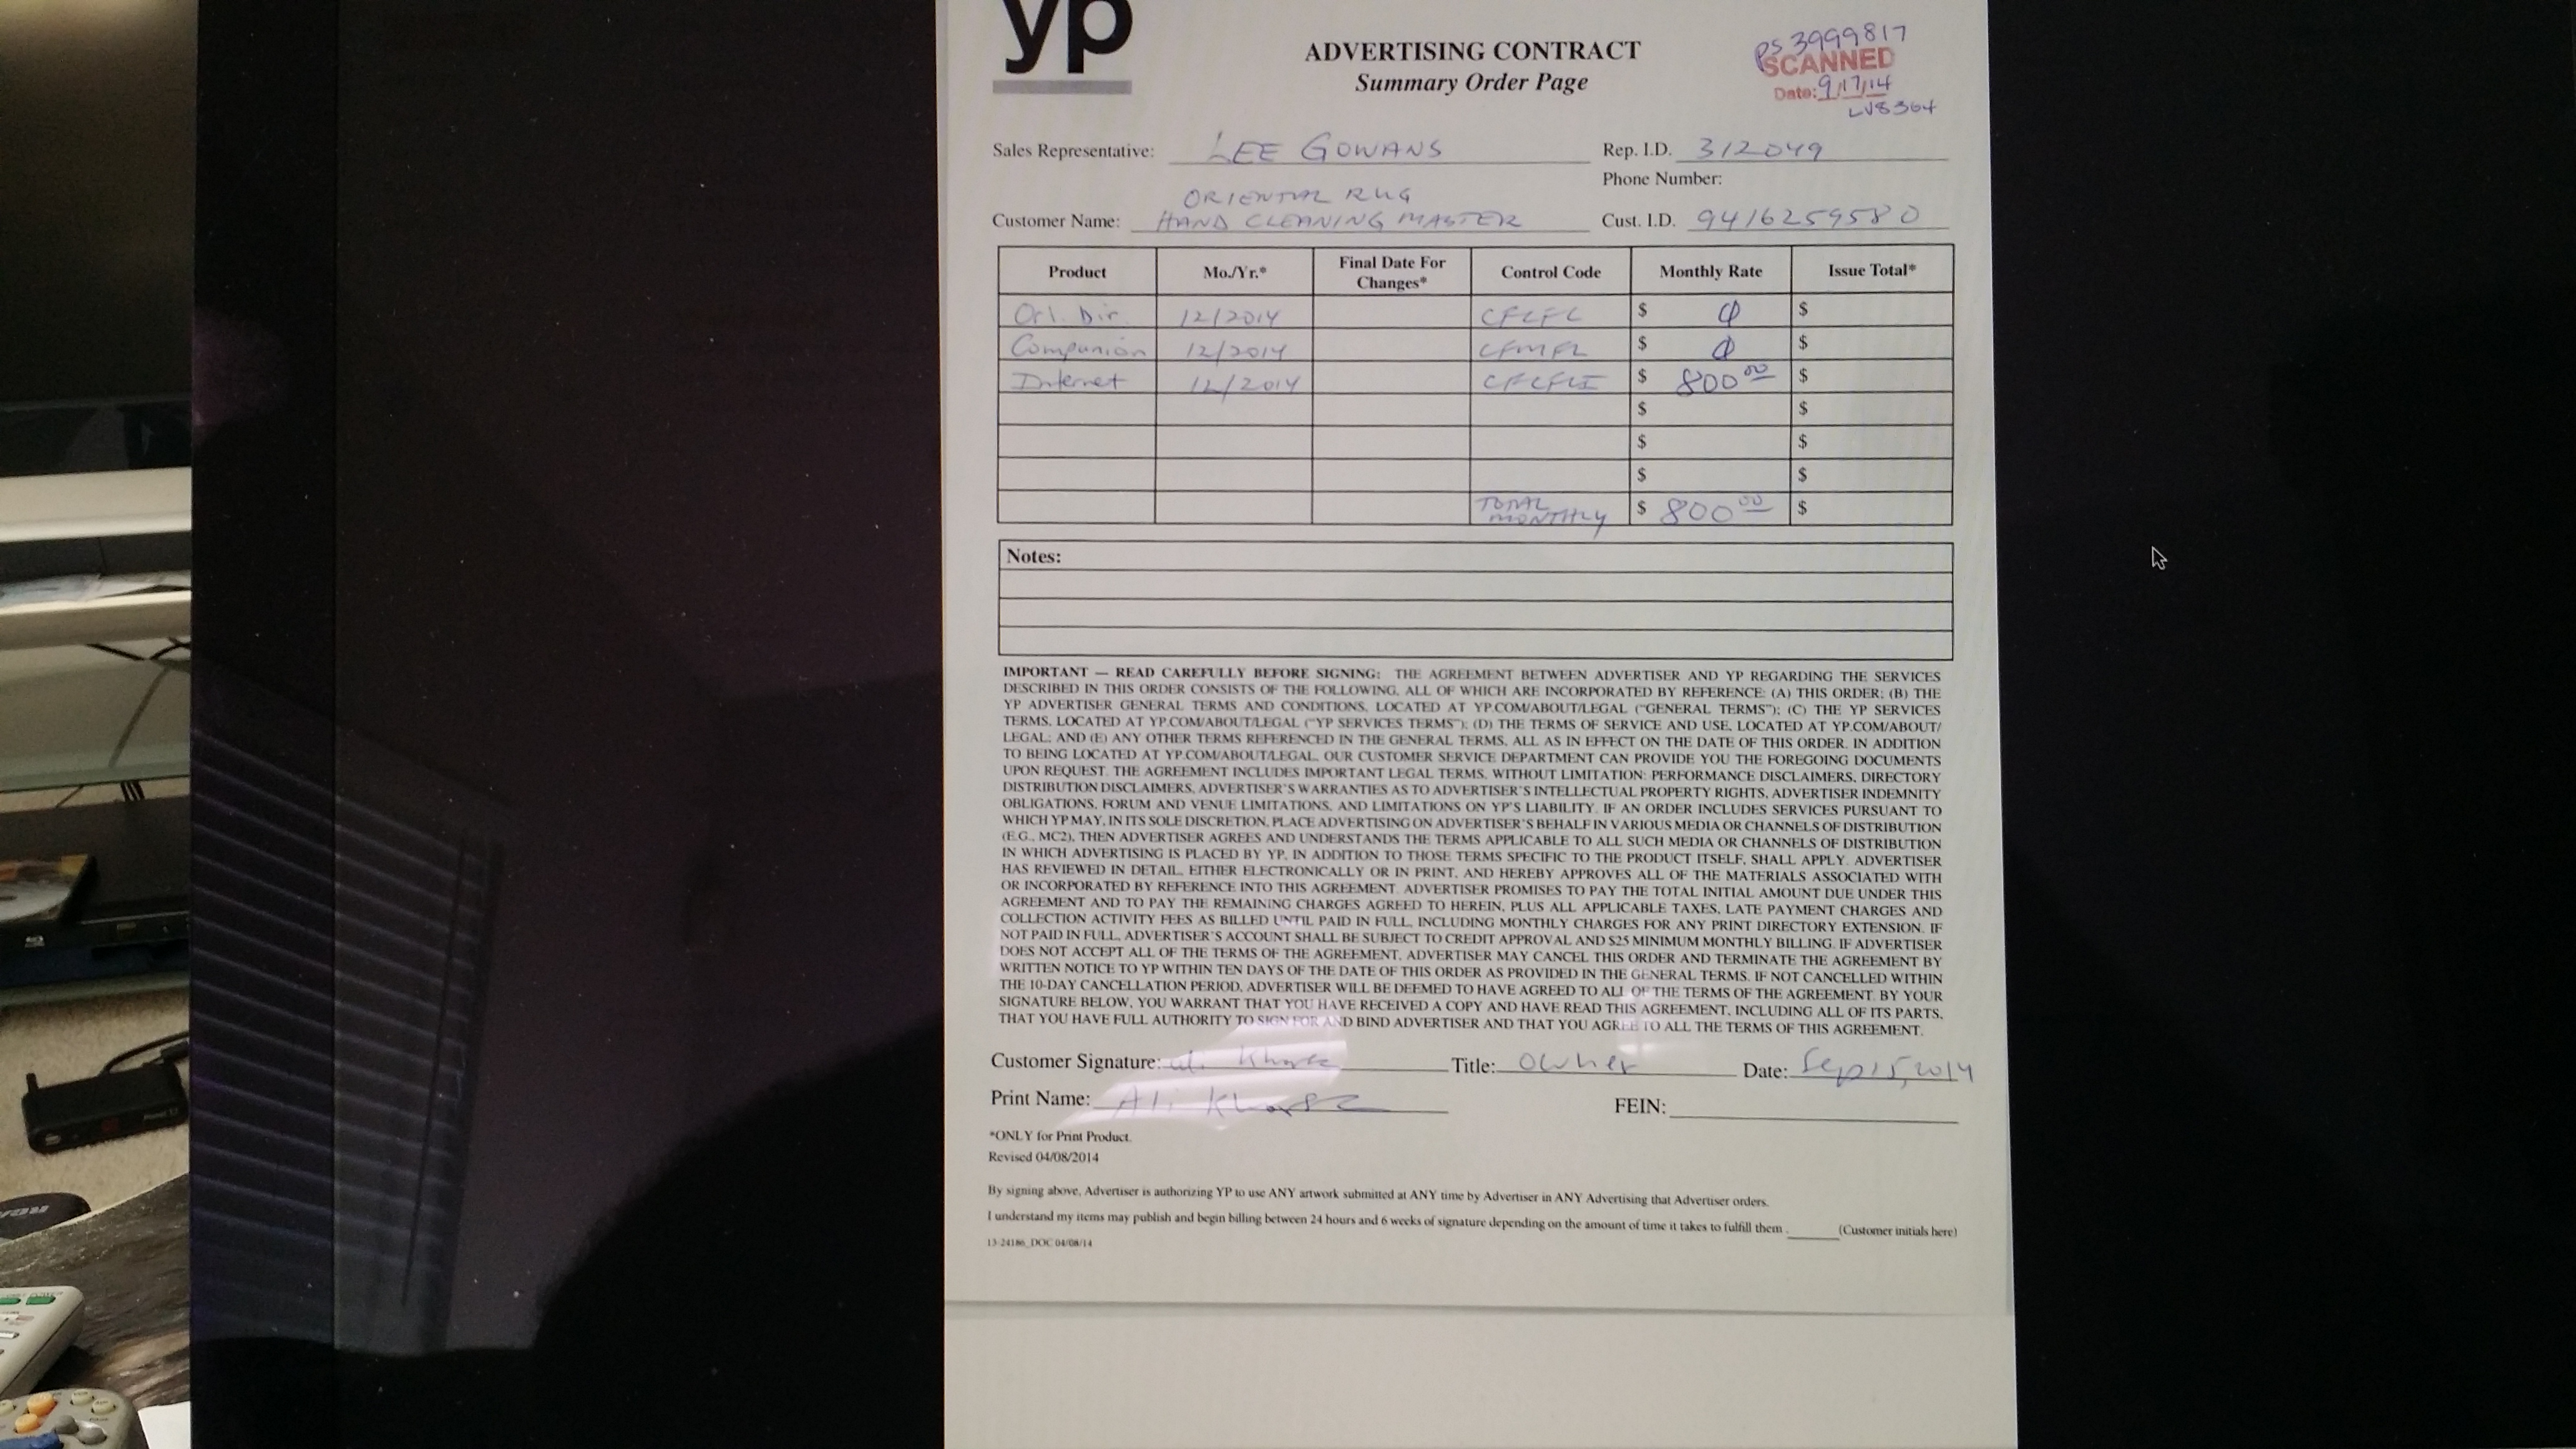 yp
ADVERTISING CONTRACT
Summary Order Page
PS 3999817
SCANNED
Date: 9/17/14
LV8364
Sales Representative: LEE GOWANS Rep. I.D. 312049
Phone Number:
ORIENTAL RUG
Customer Name: HAND CLEANING MASTER Cust. I.D. 9416259580
Product Mo./Yr.* Final Date For Changes* Control Code Monthly Rate Issue Total*
Orl. Dir. 12/2014 CFLFL $ 0 $
Companion 12/2014 CFMFL $ 0 $
Internet 12/2014 CFLFLI $ 800 00 $
$ $
$ $
$ $
TOTAL MONTHLY $ 800 00 $
Notes:
IMPORTANT — READ CAREFULLY BEFORE SIGNING: THE AGREEMENT BETWEEN ADVERTISER AND YP REGARDING THE SERVICES
DESCRIBED IN THIS ORDER CONSISTS OF THE FOLLOWING, ALL OF WHICH ARE INCORPORATED BY REFERENCE: (A) THIS ORDER; (B) THE
YP ADVERTISER GENERAL TERMS AND CONDITIONS, LOCATED AT YP.COM/ABOUT/LEGAL ("GENERAL TERMS"); (C) THE YP SERVICES
TERMS, LOCATED AT YP.COM/ABOUT/LEGAL ("YP SERVICES TERMS"); (D) THE TERMS OF SERVICE AND USE, LOCATED AT YP.COM/ABOUT/
LEGAL; AND (E) ANY OTHER TERMS REFERENCED IN THE GENERAL TERMS, ALL AS IN EFFECT ON THE DATE OF THIS ORDER. IN ADDITION
TO BEING LOCATED AT YP.COM/ABOUT/LEGAL, OUR CUSTOMER SERVICE DEPARTMENT CAN PROVIDE YOU THE FOREGOING DOCUMENTS
UPON REQUEST. THE AGREEMENT INCLUDES IMPORTANT LEGAL TERMS, WITHOUT LIMITATION: PERFORMANCE DISCLAIMERS, DIRECTORY
DISTRIBUTION DISCLAIMERS, ADVERTISER'S WARRANTIES AS TO ADVERTISER'S INTELLECTUAL PROPERTY RIGHTS, ADVERTISER INDEMNITY
OBLIGATIONS, FORUM AND VENUE LIMITATIONS, AND LIMITATIONS ON YP'S LIABILITY. IF AN ORDER INCLUDES SERVICES PURSUANT TO
WHICH YP MAY, IN ITS SOLE DISCRETION, PLACE ADVERTISING ON ADVERTISER'S BEHALF IN VARIOUS MEDIA OR CHANNELS OF DISTRIBUTION
(E.G., MC2), THEN ADVERTISER AGREES AND UNDERSTANDS THE TERMS APPLICABLE TO ALL SUCH MEDIA OR CHANNELS OF DISTRIBUTION
IN WHICH ADVERTISING IS PLACED BY YP, IN ADDITION TO THOSE TERMS SPECIFIC TO THE PRODUCT ITSELF, SHALL APPLY. ADVERTISER
HAS REVIEWED IN DETAIL, EITHER ELECTRONICALLY OR IN PRINT, AND HEREBY APPROVES ALL OF THE MATERIALS ASSOCIATED WITH
OR INCORPORATED BY REFERENCE INTO THIS AGREEMENT. ADVERTISER PROMISES TO PAY THE TOTAL INITIAL AMOUNT DUE UNDER THIS
AGREEMENT AND TO PAY THE REMAINING CHARGES AGREED TO HEREIN, PLUS ALL APPLICABLE TAXES, LATE PAYMENT CHARGES AND
COLLECTION ACTIVITY FEES AS BILLED UNTIL PAID IN FULL, INCLUDING MONTHLY CHARGES FOR ANY PRINT DIRECTORY EXTENSION. IF
NOT PAID IN FULL, ADVERTISER'S ACCOUNT SHALL BE SUBJECT TO CREDIT APPROVAL AND $25 MINIMUM MONTHLY BILLING. IF ADVERTISER
DOES NOT ACCEPT ALL OF THE TERMS OF THE AGREEMENT, ADVERTISER MAY CANCEL THIS ORDER AND TERMINATE THE AGREEMENT BY
WRITTEN NOTICE TO YP WITHIN TEN DAYS OF THE DATE OF THIS ORDER AS PROVIDED IN THE GENERAL TERMS. IF NOT CANCELLED WITHIN
THE 10-DAY CANCELLATION PERIOD, ADVERTISER WILL BE DEEMED TO HAVE AGREED TO ALL OF THE TERMS OF THE AGREEMENT. BY YOUR
SIGNATURE BELOW, YOU WARRANT THAT YOU HAVE RECEIVED A COPY AND HAVE READ THIS AGREEMENT, INCLUDING ALL OF ITS PARTS,
THAT YOU HAVE FULL AUTHORITY TO SIGN FOR AND BIND ADVERTISER AND THAT YOU AGREE TO ALL THE TERMS OF THIS AGREEMENT.
Customer Signature: Title: Owner Date: Sep 15, 2014
Print Name: Ali FEIN:
*ONLY for Print Product.
Revised 04/08/2014
By signing above, Advertiser is authorizing YP to use ANY artwork submitted at ANY time by Advertiser in ANY Advertising that Advertiser orders.
I understand my items may publish and begin billing between 24 hours and 6 weeks of signature depending on the amount of time it takes to fulfill them. (Customer initials here)
13-24186_DOC 04/08/14
RCA